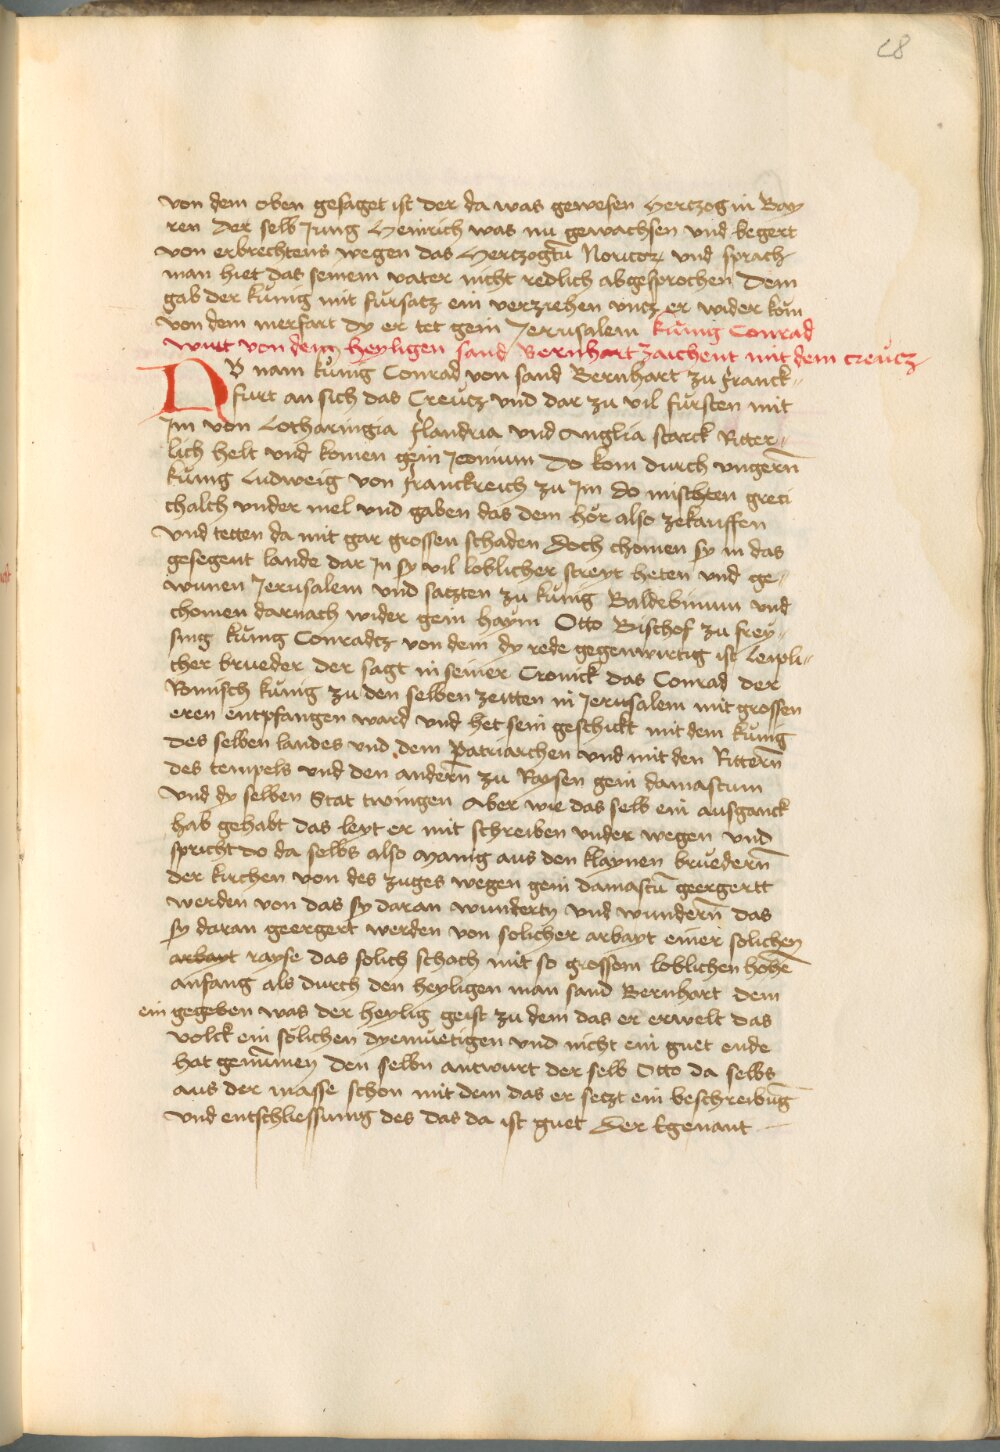 28
von dem oben gesaget ist der da was gewesen Hertzog in Bay
ren der selb Jung Heinrich was nu gewachsen und begert
von erbrechtens wegen das Hertzogtū Noricor und sprach
man hiet das seinem vater nicht redlich abgesprochen Dem
gab der kůnig mit fůrsatz ein verziehen vncz er wider kom
von dem merfart dy er tet gein Jerusalem kůnig Conrad
wirt von dem heyligen sand Bernhart zaichent mit dem creůcz
Do nam kůnig Conrad von sand Bernhart zu franck-
furt an sich das Creůcz vnd dar zu vil fůrsten mit
Im von Lotharingia flandria vnd Anglia starck Ritter-
lich helt vnd komen gein Iconium Do kom durch vngern̄
kůnig Ludweig von franckreich zu Im do mischten greci
chalch vnder mel vnd gaben das dem hör also zekauffen
vnd tetten da mit gar grossen schaden Doch chomen sy in das
gesegent lande dar In sy vil loblicher streyt heten vnd ge-
wunen Jerusalem vnd satzten zu kůnig Baldebinum vnd
chomen darnach wider gein haym Otto Bischof zu frey-
sing kůnig Conradcz von dem dy rede gegenwirtig ist Leipli-
cher brueder der sagt in seiner Cronick das Conrad der
Romisch kůnig zu den selben zeitten in Jerusalem mit grossen
eren entpfangen ward vnd het sein geschickt mit dem kůnig
des selben landes vnd dem Patriarchen vnd mit den Rittern̄
des tempels vnd den andern̄ zu Raysen gein damascum
vnd dy selben Stat twingen Aber wie das selb ein ausganck
hab gehabt das leyt er mit schreiben vnder wegen vnd
spricht do da selbs also Manig aus den klaynen bruedern̄
der kirchen von des zuges wegen gein damascū geergertt
werden von das sy daran wundertn vnd wundern̄ das
sy daran geergert werden von solicher arbayt einer solichen
arbayt rayse das solich schach mit so grossem loblichen hohē
anfang als durch den heyligen man sand Bernhart dem
ein gegeben was der heylig geist zu dem das er erwelt das
volck ein sölichen dyemůetigen vnd nicht ein guet ende
hat genūmen den selbn antwurt der selb Otto da selbs
aus der masse schon mit dem das er setzt ein beschreibūg
vnd entschliessung des das da ist guet Der Egenant